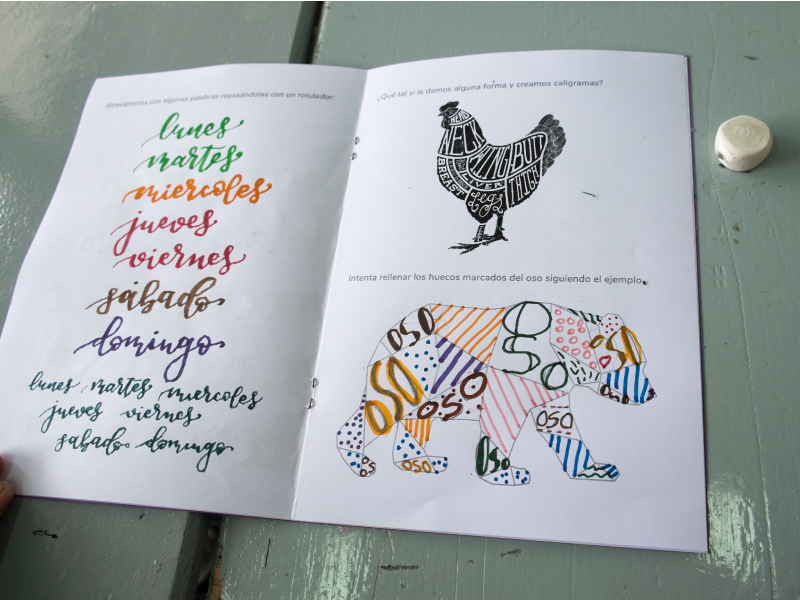 Atrevámonos con algunas palabras repasándolas con un rotulador:
lunes
martes
miercoles
jueves
viernes
sábado
domingo
lunes martes miercoles
jueves viernes
sabado domingo
¿Qué tal si le damos alguna forma y creamos caligramas?
HEAD
NECK
WING
BUTT
BREAST
LIVER
THIGH
Legs
Intenta rellenar los huecos marcados del oso siguiendo el ejemplo.
OSO
OSO
OSO
OSO
OSO
OSO
OSO
OSO
OSO
OSO